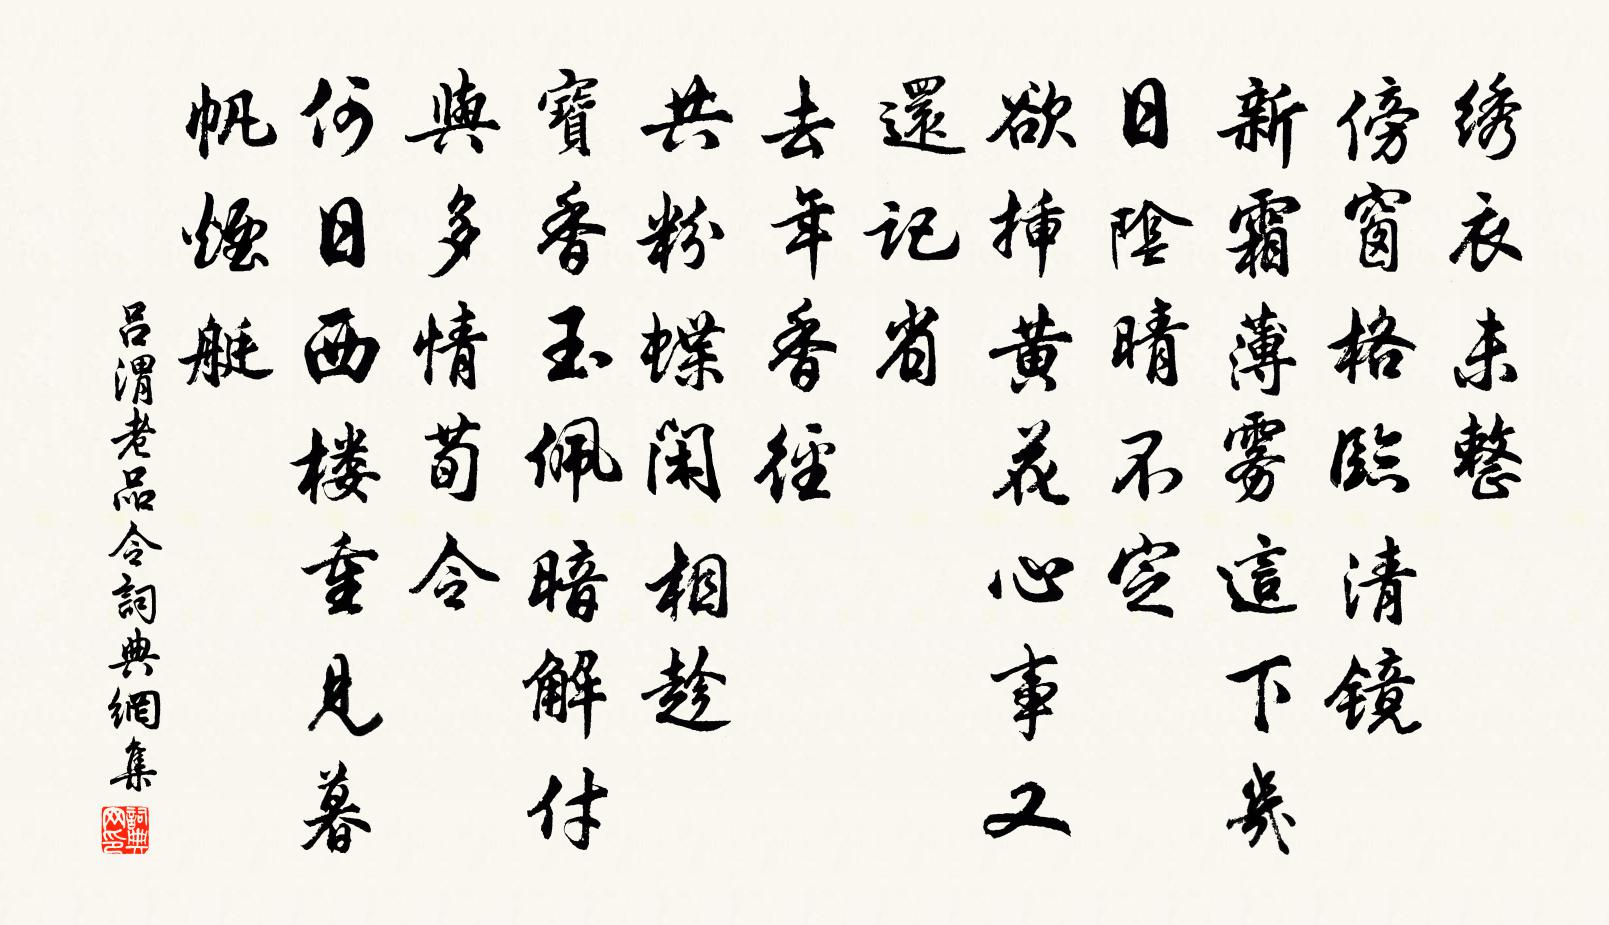 绣衣未整
傍窗格临清镜
新霜薄雾這下幾
日陰晴不定
欲挿黄花心事又
還记省
去年香徑
共粉蝶闲相趁
寶香玉佩暗解付
與多情荀令
何日西楼重見暮
帆煙艇
吕渭老品令詞典網集
詞典网印